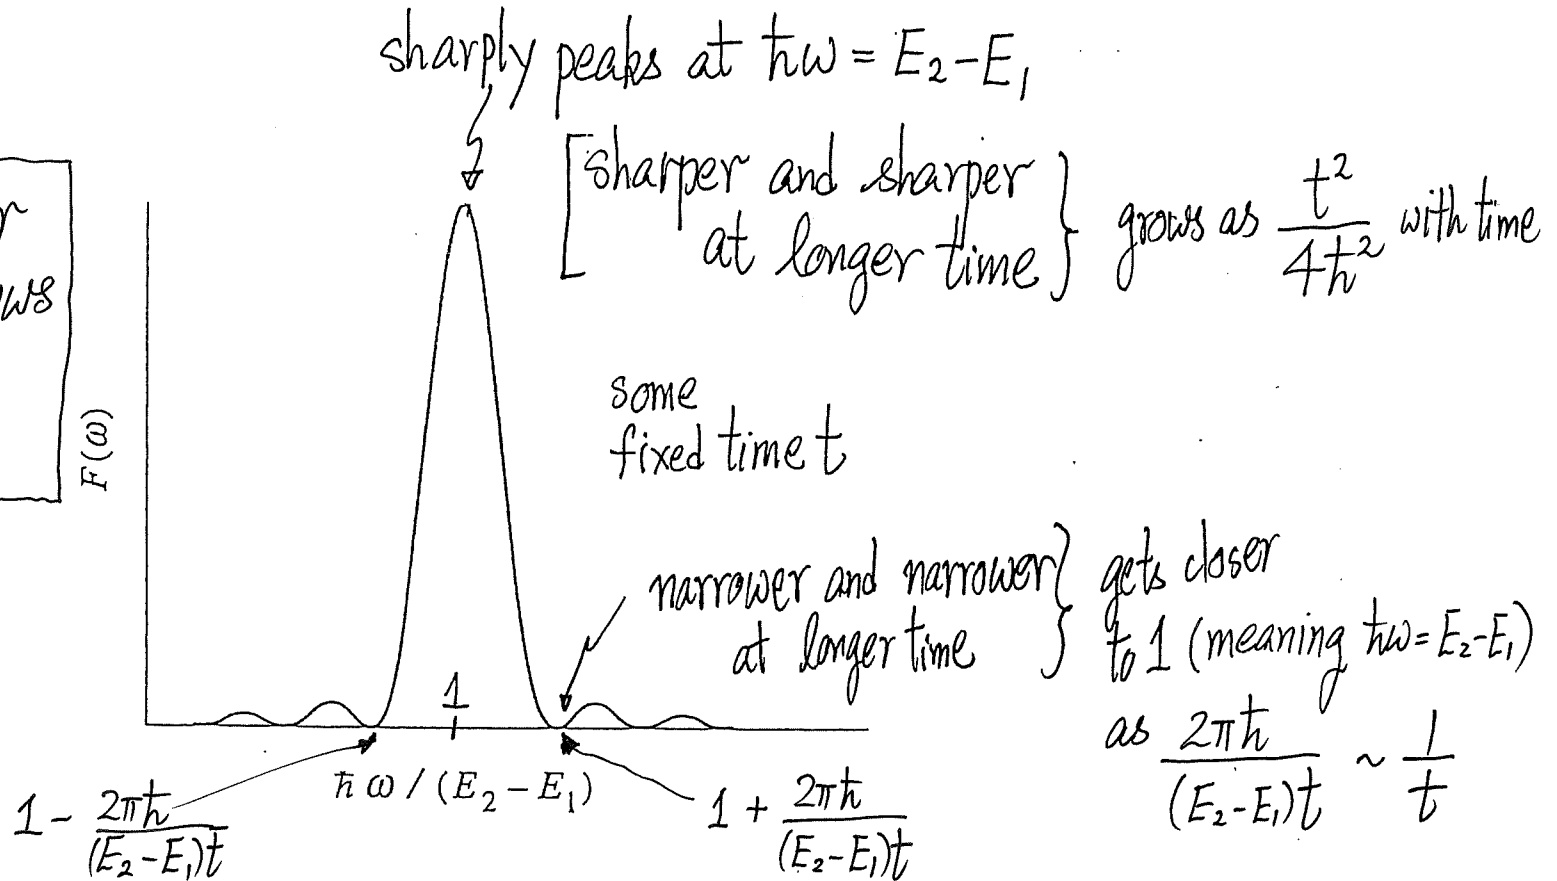 sharply peaks at ħω = E₂-E₁
[sharper and sharper
at longer time} grows as t²/4ħ² with time
ws
F(ω)
some
fixed time t
narrower and narrower
at longer time } gets closer
to 1 (meaning ħω=E₂-E₁)
as 2πħ/(E₂-E₁)t ~ 1/t
1
ħω/(E₂-E₁)
1- 2πħ/(E₂-E₁)t
1 + 2πħ/(E₂-E₁)t